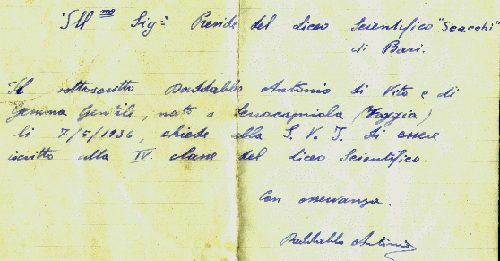 Ill.mo Sig. Preside del Liceo Scientifico "Scacchi"
di Bari.
Il sottoscritto Antonio di Vito e di
Gemma Gentile, nato a Serracapriola (Foggia)
li 7/5/1936, chiede alla S. V. I. di essere
iscritto alla IV classe del Liceo Scientifico.
Con osservanza.
Antonio